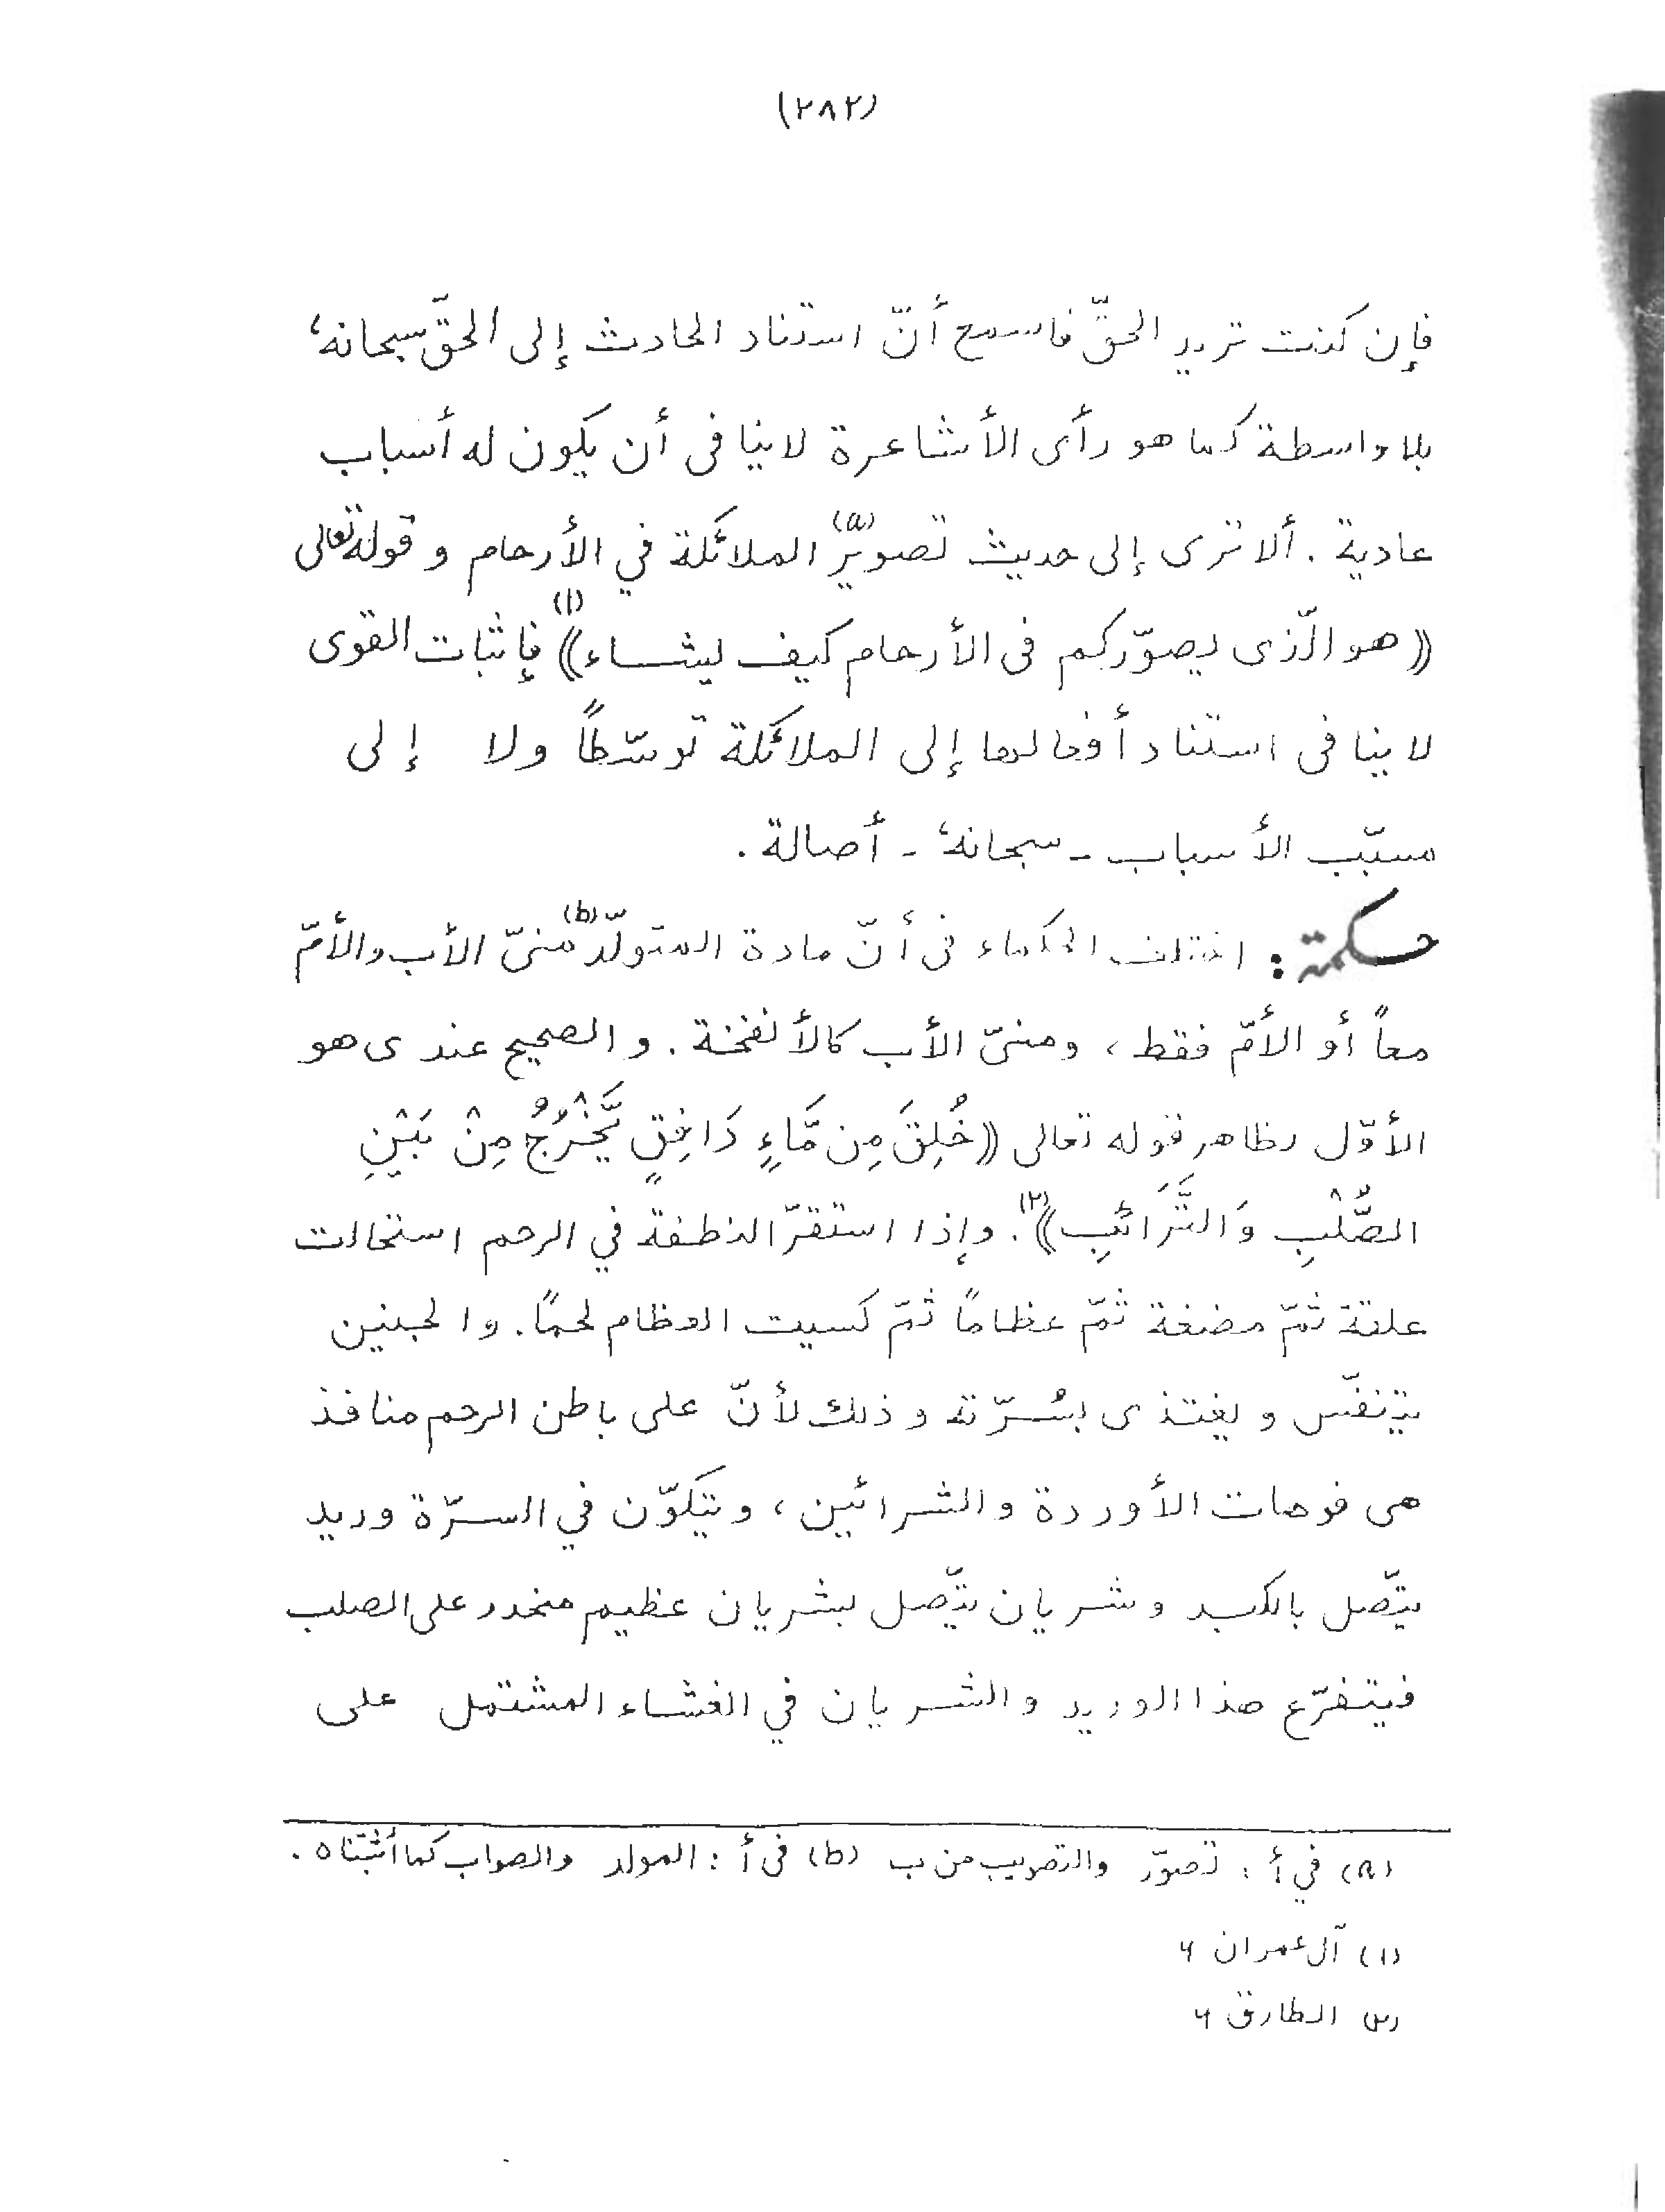 (٢٨٢)
فإن كنت تريد الحقّ فاسمع أنّ استناد الحادث إلى الحقّ سبحانه،
بلا واسطة كما هو رأى الأشاعرة لاينافى أن يكون له أسباب
عادية . ألا ترى إلى حديث تصويرّ(a) الملائكة في الأرحام و قوله تعالى
((هو الّذى يصوّركم فى الأرحام كيف يشاء))(١) فإثبات القوى
لاينافى استناد أفعالها إلى الملائكة توسّطاً ولا إلى
مسبّب الأسباب - سبحانه، - أصالة .
حكمة : اختلف الحكماء فى أنّ مادة المتولّد(b) منىّ الأب والأمّ
معاً أو الأمّ فقط ، ومنىّ الأب كالأنفخة . و الصحيح عندى هو
الأوّل لظاهر قوله تعالى ((خُلِقَ مِن مَّاءٍ دَافِقٍ يَّخْرُجُ مِنْ بَيْنِ
الصُّلْبِ وَالتَّرَائبِ))(٢). وإذا استقرّ النطفة في الرحم استحالت
علقة ثمّ مضغة ثمّ عظاماً ثمّ كسيت العظام لحماً. والجنين
يتنفّس و يغتذى بسُرّته و ذلك لأنّ على باطن الرحم منافذ
هى فوهات الأوردة والشرائين ، ويتكوّن في السرّة وريد
يتّصل بالكبد وشريان يتّصل بشريان عظيم منحدر على الصلب
فيتفرّع هذا الوريد والشريان في الغشاء المشتمل على
(a) في أ : تصوّر والتصويب من ب (b) فى أ : المولد والصواب كما أثبتناه .
(١) آل عمران ٦
(٢) الطارق ٦